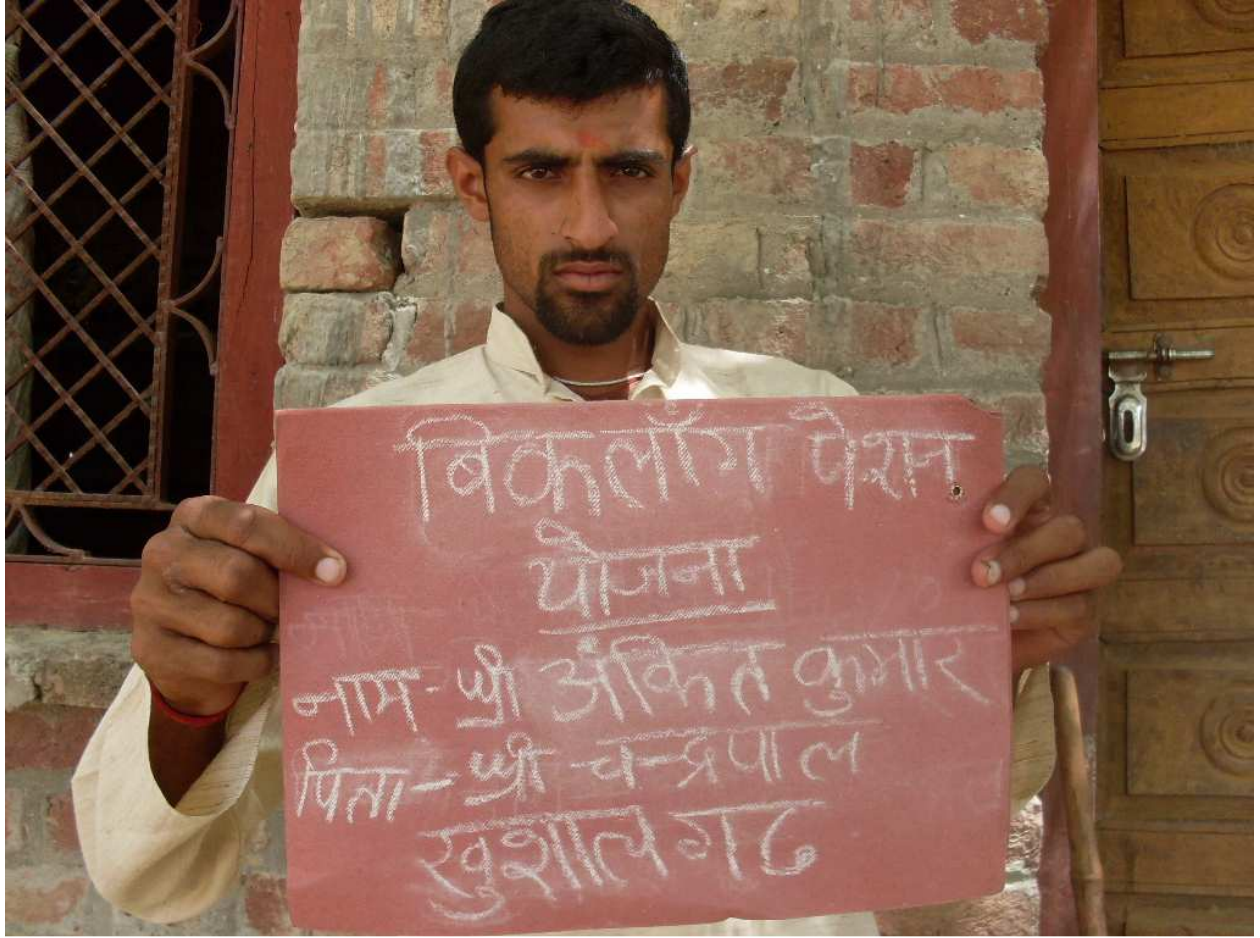 बिकलाँग पेशन
योजना
नाम - श्री अंकित कुमार
पिता - श्री चन्द्रपाल
खुशालगढ